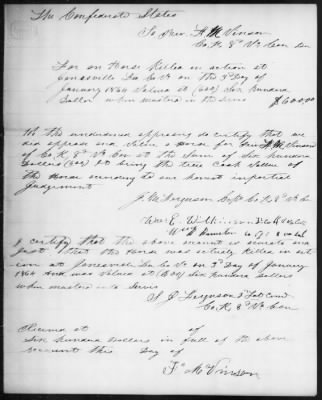 The Confederate States
To Priv. F. M. Vinson
Co. K. 8th Va Cav Dr
For one Horse Killed in action at
Jonesville Lee Co Va on the 3d Day of
January 1864 Valued at (600) Six hundred
Dollars when mustered in the Service $600.00
We the undersigned appraisers do certify that we
did appraise and Value a Horse for Priv F. M. Vinson
of Co. K, 8th Va Cav at the Sum of Six hundred
Dollars (600) it being the true Cash Value of
the Horse according to our honest impartial
Judgement
J. M. Ferguson Capt Co. K. 8th Va Ca
Wm E. Wilkinson
Wm Hamilton
I certify that the above amount is accurate and
just & that the Horse was actually Killed in act-
ion at Jonesville Lee Co Va on 3d Day of January
1864 And was Valued at (600) Six hundred Dollars
when mustered in to Service
S. J. Ferguson Lt Com
Co. K, 8th Va Cav
Received at of
Six hundred Dollars in full of the above
account this Day of
F. M Vinson